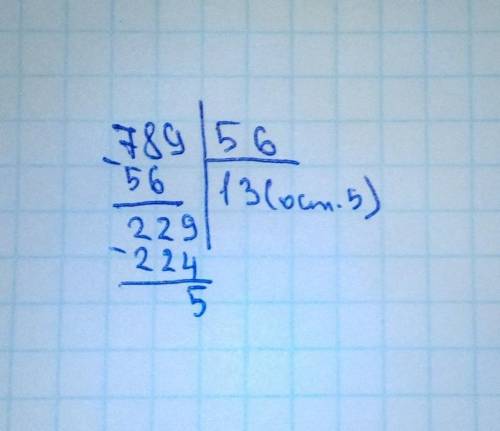 -789 56
56 13(ост.5)
229
-224
5